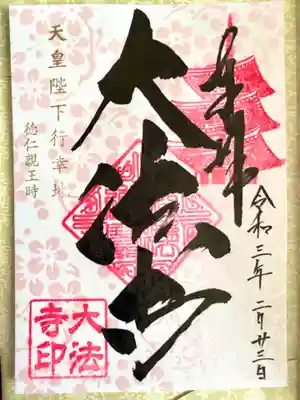 奉拝
令和三年 二月廿三日
大法寺
天皇陛下行幸
徳仁親王時
大法
寺印